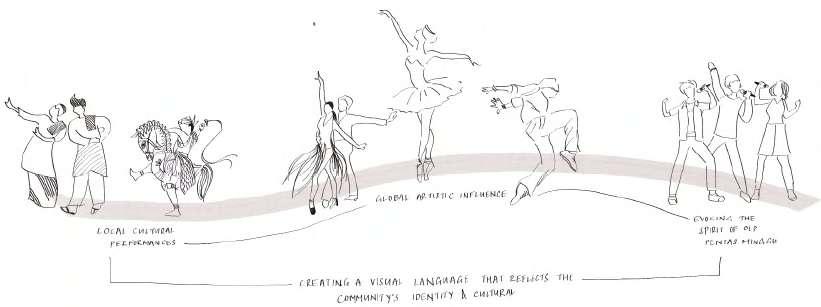 LOCAL CULTURAL
PERFORMANCES
GLOBAL ARTISTIC INFLUENCE
EVOKING THE
SPIRIT OF OLD
PENTAS MINGGU
CREATING A VISUAL LANGUAGE THAT REFLECTS THE
COMMUNITY'S IDENTITY & CULTURAL